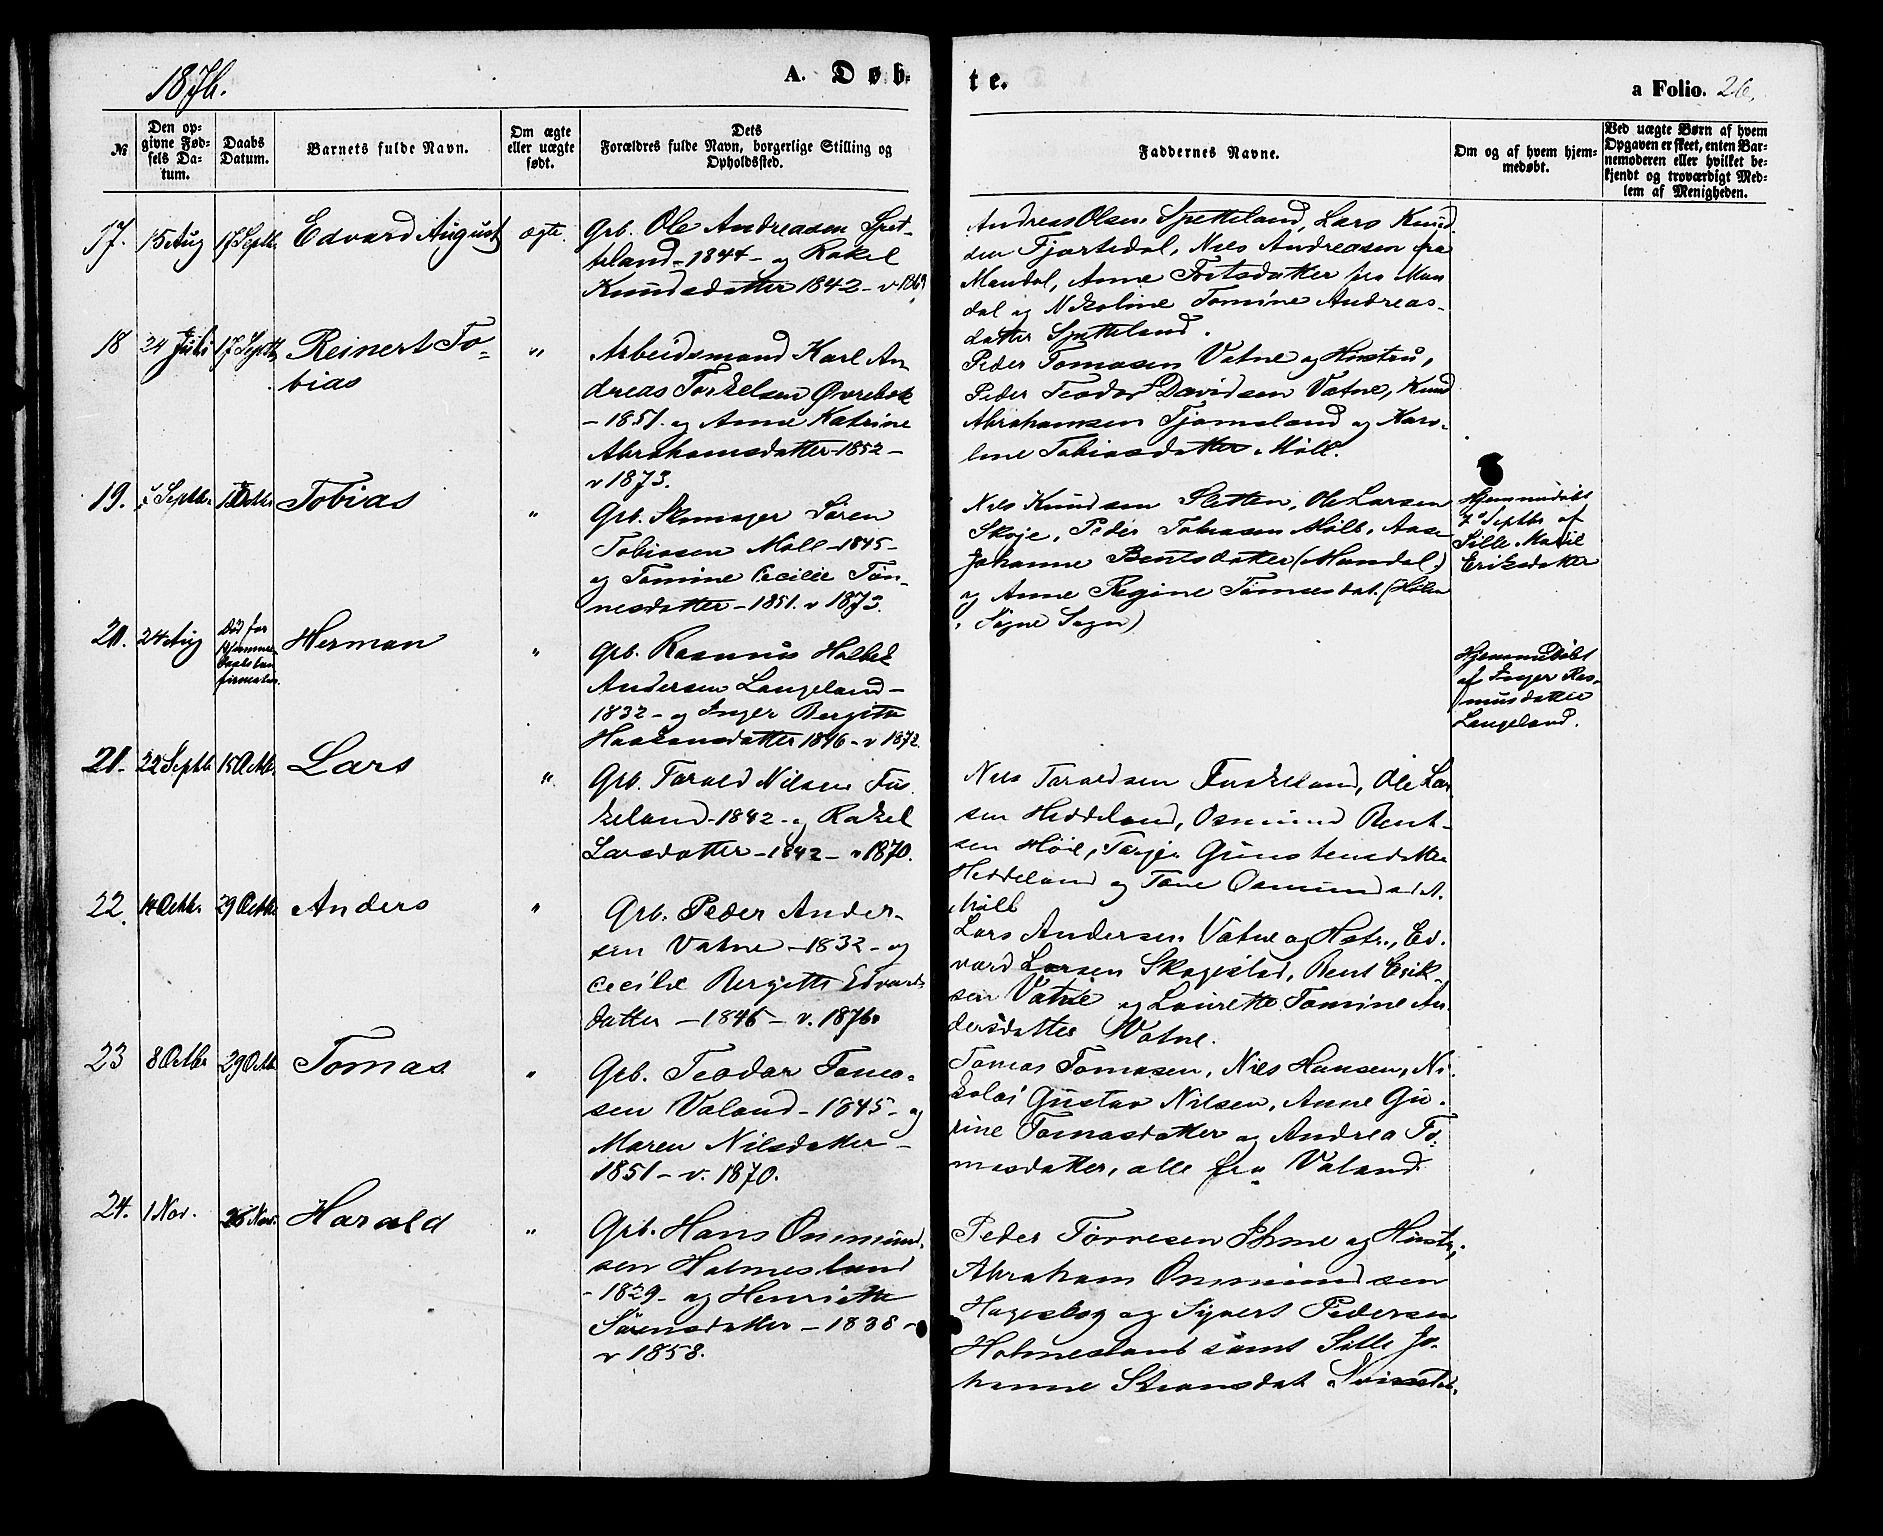 1876.
A. Døb-
te.
a Folio. 26.
№
Den op-
givne Fød-
sels Da-
tum.
Daabs
Datum.
Barnets fulde Navn.
Om ægte
eller uægte
født.
Dets
Forældres fulde Navn, borgerlige Stilling og
Opholdssted.
Faddernes Navne.
Om og af hvem hjem-
medøbt.
Ved uægte Børn af hvem
Opgaven er skeet, enten Bar-
nemoderen eller hvilket be-
kjendt og troværdigt Med-
lem af Menigheden.
17. 15 Aug 17 Septb. Edvard August ægte.
Grb. Ole Andreasen Spet-
teland - 1844 - og Rakel
Knudsdatter 1842 - v 1869
Andreas Olsen Spetteland, Lars Knud-
sen Fjortedal, Niels Andreasen fra
Mandal, Anne datter fra Man
dal og Nikoline Tomine Andreas-
datter Spetteland.
18 24 Juli 17 Septb Reinert To-
bias
"
Arbeidsmand Karl An
dreas Torkelsen Øvrebøk
- 1851. og Anne Katrine
Abrahamsdatter - 1852 -
v 1873.
Peder Tomasen Vatne og Hustru,
Peder Teodor Davidsen Vatne, Knud
Abrahamsen Tjomsland og Karo-
line Tobiasdatter Møll.
19. 7 Septb. Octbr Tobias
"
Grb. Skomager Sören
Tobiasen Møll - 1845 -
og Tomine Cecilie Tön-
nesdatter - 1851. v 1873.
Niels Knudsen Sletten, Ole Larsen
Skoje, Peder Tobiasen Møll, Aase
Johanne Bentsdatter (Mandal)
og Anne Regine Tönnesdat. (Hølen
i Søgne Sogn)
Hjemmedöbt
7 Septbr af
Sille Maril
Eriksdatter
20. 24 Aug Død før
Hjemme-
daabs kon
firmation.
Herman
"
Grb. Rasmus Holbek
Andersen Langeland -
1832 - og Inger Bergitte
Haakonsdatter 1846 - v 1872.
Hjemmedöbt
af Inger Ras-
musdatter
Langeland.
21. 22 Septb 15 Octb. Lars
"
Grb. Tarald Nilsen Fus
keland - 1842 - og Rakel
Larsdatter - 1842 - v 1870.
Niels Taraldsen Fuskeland, Ole Lar-
sen Heddeland, Osmund Bent-
sen Høie, Tarjer Gunstensdatter
Heddeland og Tone Osmundsd.
Møll
22. 14 Octb. 29 Octb Anders
"
Grb. Peder Ander-
sen Vatne - 1832 - og
Cecilie Bergitte Edvards
datter - 1846 - v. 1876
Lars Andersen Vatne og Hstr., Ed-
vard Larsen Skagestad, Bent Erik-
sen Vatne og Laurette Tomine An-
dersdatter Vatne.
23 8 Octbr 29 Octb Tomas
"
Grb. Teodor Toma-
sen Valand - 1845 - og
Maren Nilsdatter -
1851 - v. 1870.
Tomas Tomasen, Niels Hansen, Ni-
kolai Gustav Nilsen, Anne Gu-
rine Tomasdatter og Andrea To-
masdatter, alle fra Valand.
24. 1 Nov. 26 Nov. Harald
"
Grb. Hans Ommund-
sen Holmesland
- 1829 - og Henriette
Sörensdatter - 1838 -
v 1858.
Peder Törresen Ihme og Hustr,
Abraham Ommundsen
Hageskog og Syvert Pedersen
Holmesland samt Sille Jo-
hanne